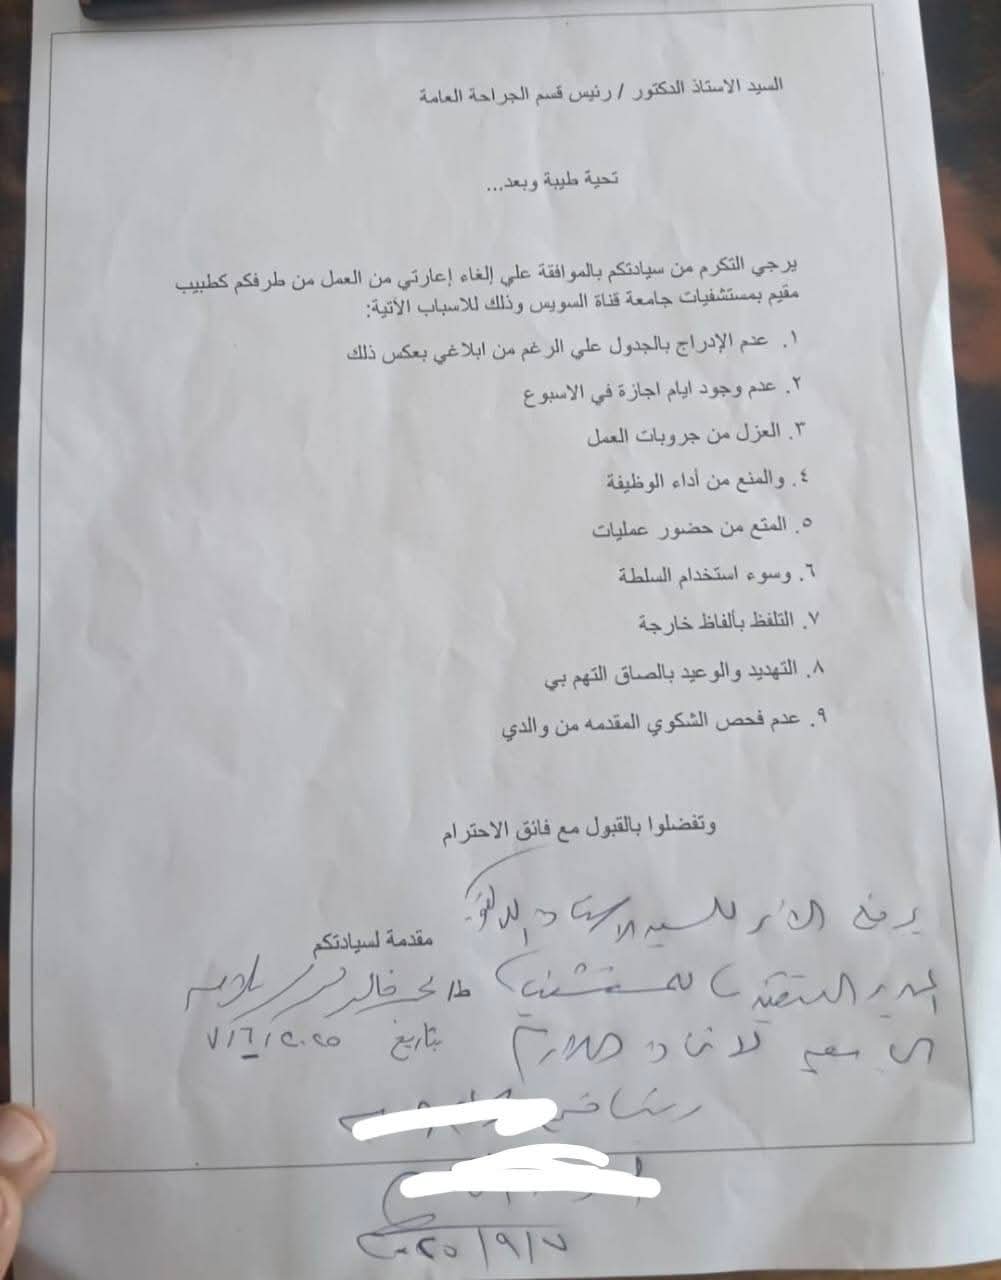 السيد الاستاذ الدكتور / رئيس قسم الجراحة العامة
تحية طيبة وبعد...
يرجي التكرم من سيادتكم بالموافقة علي إلغاء إعارتي من العمل من طرفكم كطبيب
مقيم بمستشفيات جامعة قناة السويس وذلك للاسباب الأتية:
١. عدم الإدراج بالجدول علي الرغم من ابلاغي بعكس ذلك
٢. عدم وجود ايام اجازة في الاسبوع
٣. العزل من جروبات العمل
٤. والمنع من أداء الوظيفة
٥. المتع من حضور عمليات
٦. وسوء استخدام السلطة
٧. التلفظ بألفاظ خارجة
٨. التهديد والوعيد بالصاق التهم بي
٩. عدم فحص الشكوي المقدمه من والدي
وتفضلوا بالقبول مع فائق الاحترام
يرفع الأمر للسيد الاستاذ الدكتور
مقدمة لسيادتكم
المدير التنفيذي للمستشفيات
ط/
الجامعية لاتخاذ اللازم
بتاريخ
٢٠٢٥/٩/٧